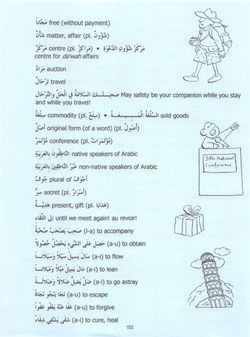 مَجَّانًا free (without payment)
شَأْنٌ matter, affair (pl. شُؤُوْنٌ)
مَرْكَزٌ centre (pl. مَرَاكِزُ) • مَرْكَزُ شُؤُوْنِ الدَّعْوَةِ
centre for da'wah affairs
مَزَادٌ auction
تَرْحَالٌ travel
صَحِبَتْكَ السَّلَامَةُ فِي الْحَلِّ وَالتَّرْحَالِ May safety be your companion while you stay
and while you travel!
سِلْعَةٌ commodity (pl. سِلَعٌ) • السِّلْعَةُ الْمَبِيْعَةُ sold goods
أَصْلٌ original form (of a word) (pl. أُصُوْلٌ)
مُؤْتَمَرٌ conference (pl. مُؤْتَمَرَاتٌ)
النَّاطِقُوْنَ بِالْعَرَبِيَّةِ native speakers of Arabic
غَيْرُ النَّاطِقِيْنَ بِالْعَرَبِيَّةِ non-native speakers of Arabic
جُوْفٌ plural of أَجْوَفُ
سِرٌّ secret (pl. أَسْرَارٌ)
هَدِيَّةٌ present, gift (pl. هَدَايَا)
إِلَى اللِّقَاءِ until we meet again! au revoir!
صَحِبَ يَصْحَبُ صُحْبَةً (i-a) to accompany
حَصَلَ عَلَى الشَّيْءِ يَحْصُلُ حُصُوْلًا (a-u) to obtain
سَالَ يَسِيْلُ سَيْلًا وَسَيَلَانًا (a-i) to flow
مَالَ يَمِيْلُ مَيْلًا وَمَيَلَانًا (a-i) to lean
ضَلَّ يَضِلُّ ضَلَالًا وَضَلَالَةً (a-i) to go astray
نَجَا يَنْجُو نَجَاةً (a-u) to escape
عَفَا عَنْهُ يَعْفُو عَفْوًا (a-u) to forgive
شَفَى يَشْفِي شِفَاءً (a-i) to cure, heal
5th National
Conference
103